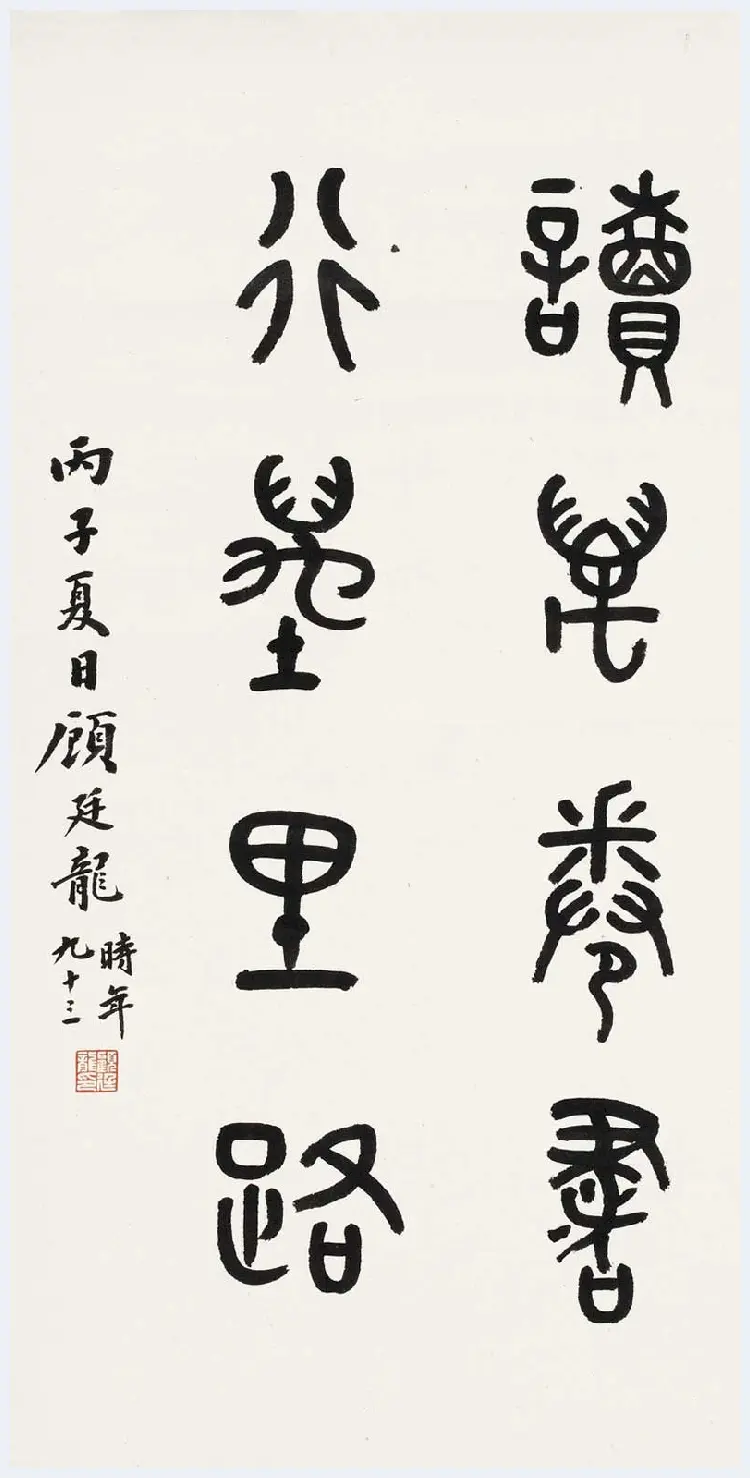 讀萬卷書
行萬里路
丙子夏日顧廷龍
時年
九十三
顧廷龍印